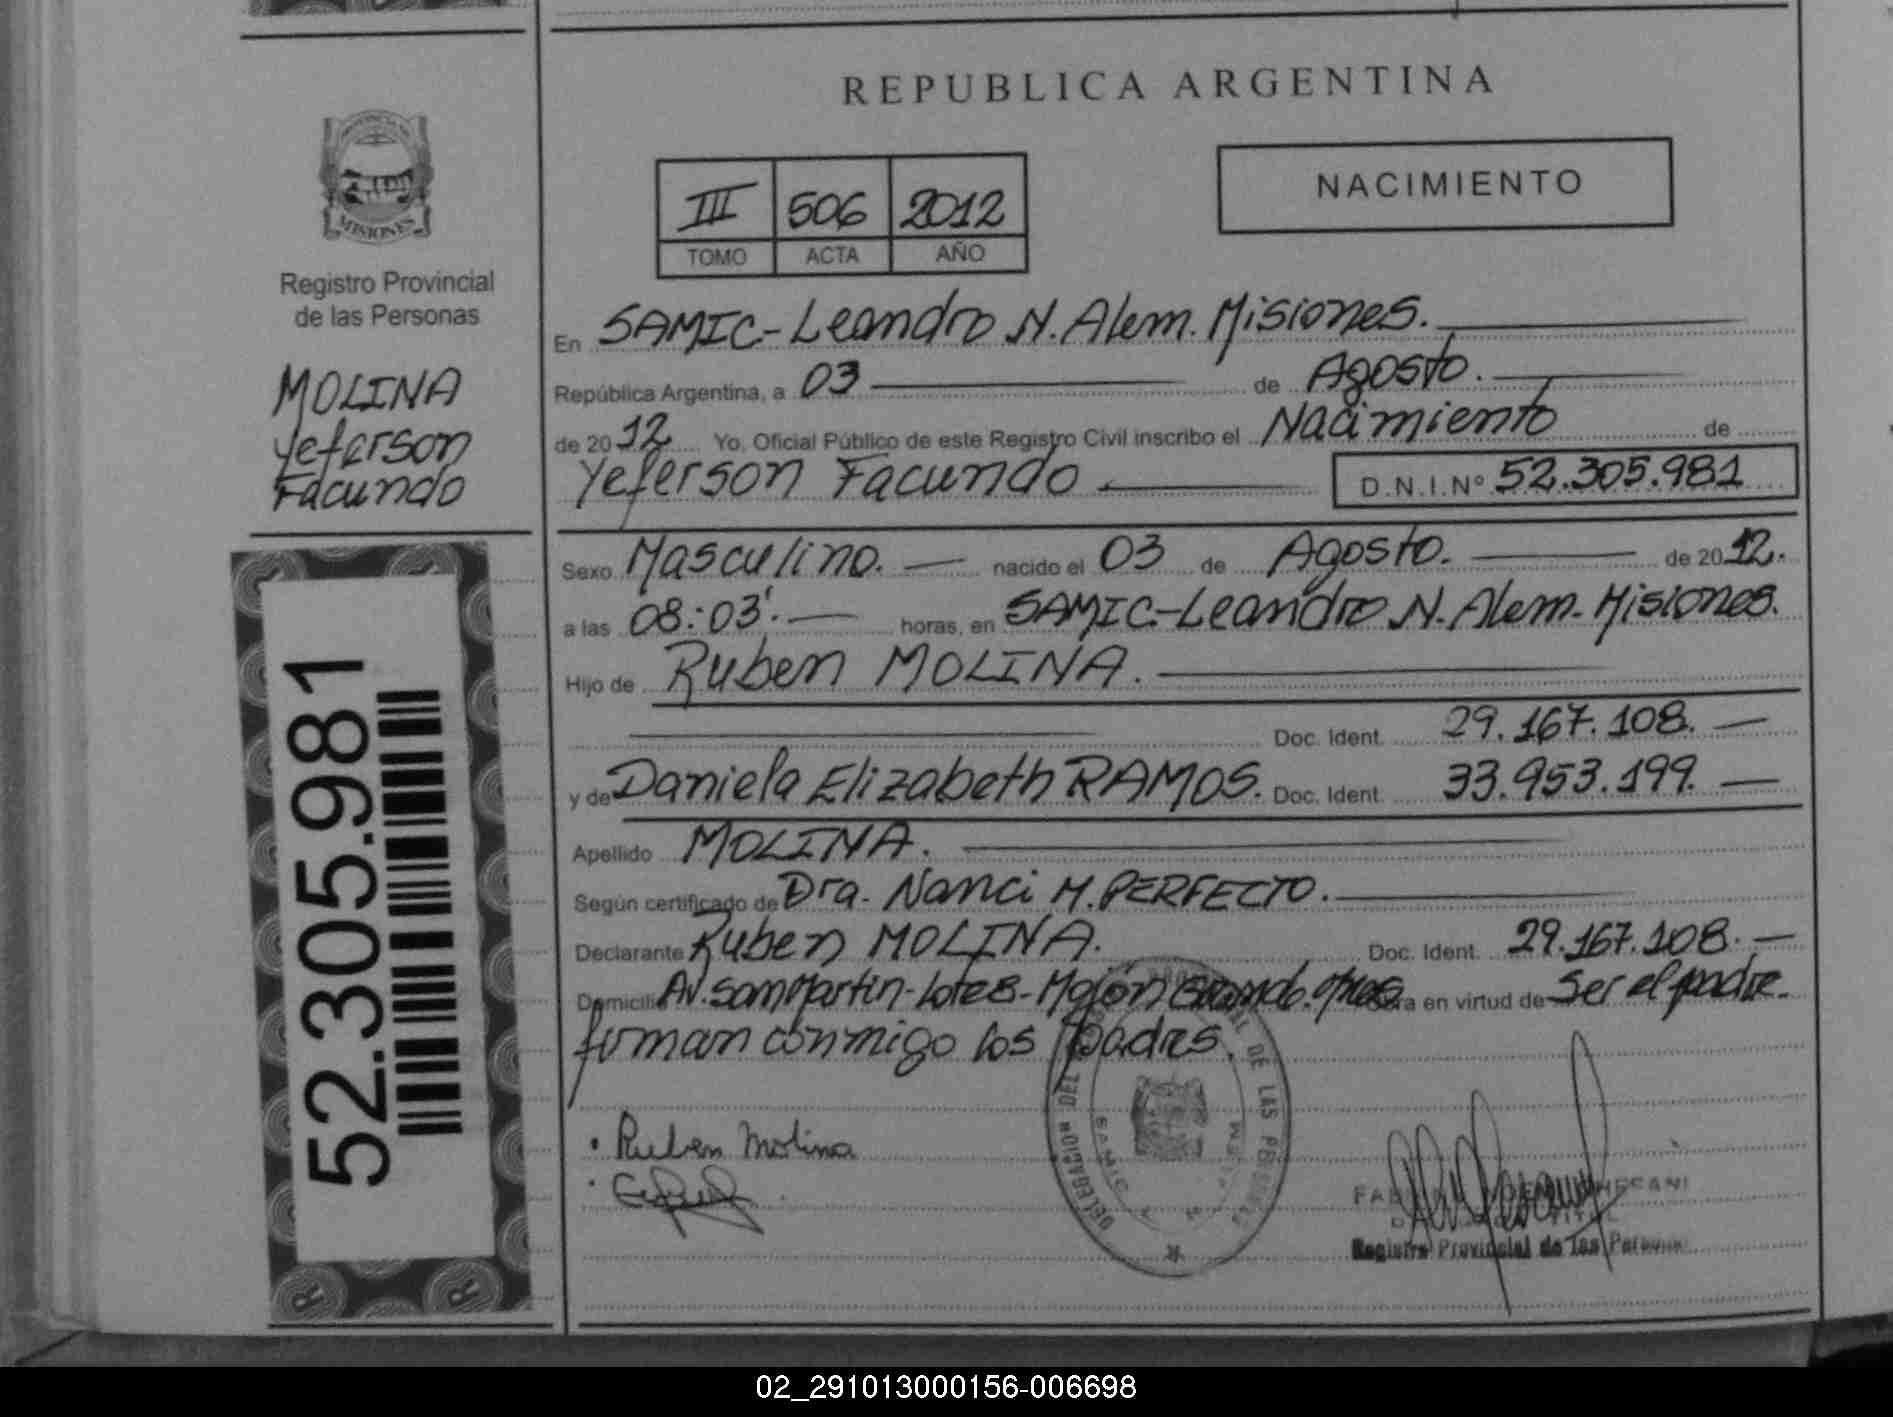 REPUBLICA ARGENTINA
PROVINCIA DE
MISIONES
Registro Provincial
de las Personas
MOLINA
Yeferson
Facundo
52.305.981
III 506 2012
TOMO ACTA AÑO
NACIMIENTO
En SAMIC-Leandro N. Alem. Misiones.
República Argentina, a 03 de Agosto.
de 2012 Yo, Oficial Público de este Registro Civil inscribo el Nacimiento de
Yeferson Facundo. D.N.I.Nº 52.305.981
Sexo Masculino. nacido el 03 de Agosto. de 2012.
a las 08:03'. horas, en SAMIC-Leandro N. Alem-Misiones.
Hijo de Ruben MOLINA.
Doc. Ident. 29.167.108.
y de Daniela Elizabeth RAMOS. Doc. Ident. 33.953.199.
Apellido MOLINA.
Según certificado de Dra. Nanci M. PERFECTO.
Declarante Ruben MOLINA. Doc. Ident. 29.167.108.
Domicilio Av. San Martin-Lote 8-Mojón Grande. en virtud de Ser el padre.
firman conmigo los padres.
Ruben Molina
DELEGACION DEL REGISTRO PROVINCIAL DE LAS PERSONAS
SAMIC
Registro Provincial de las Personas
R R
02_291013000156-006698